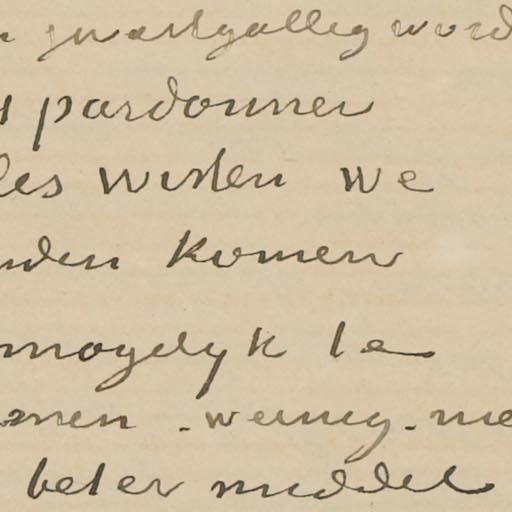 zwartgallig word
pardonner
les wisten we
nden komen
mogelyk te
men - weinig - me
beter middel